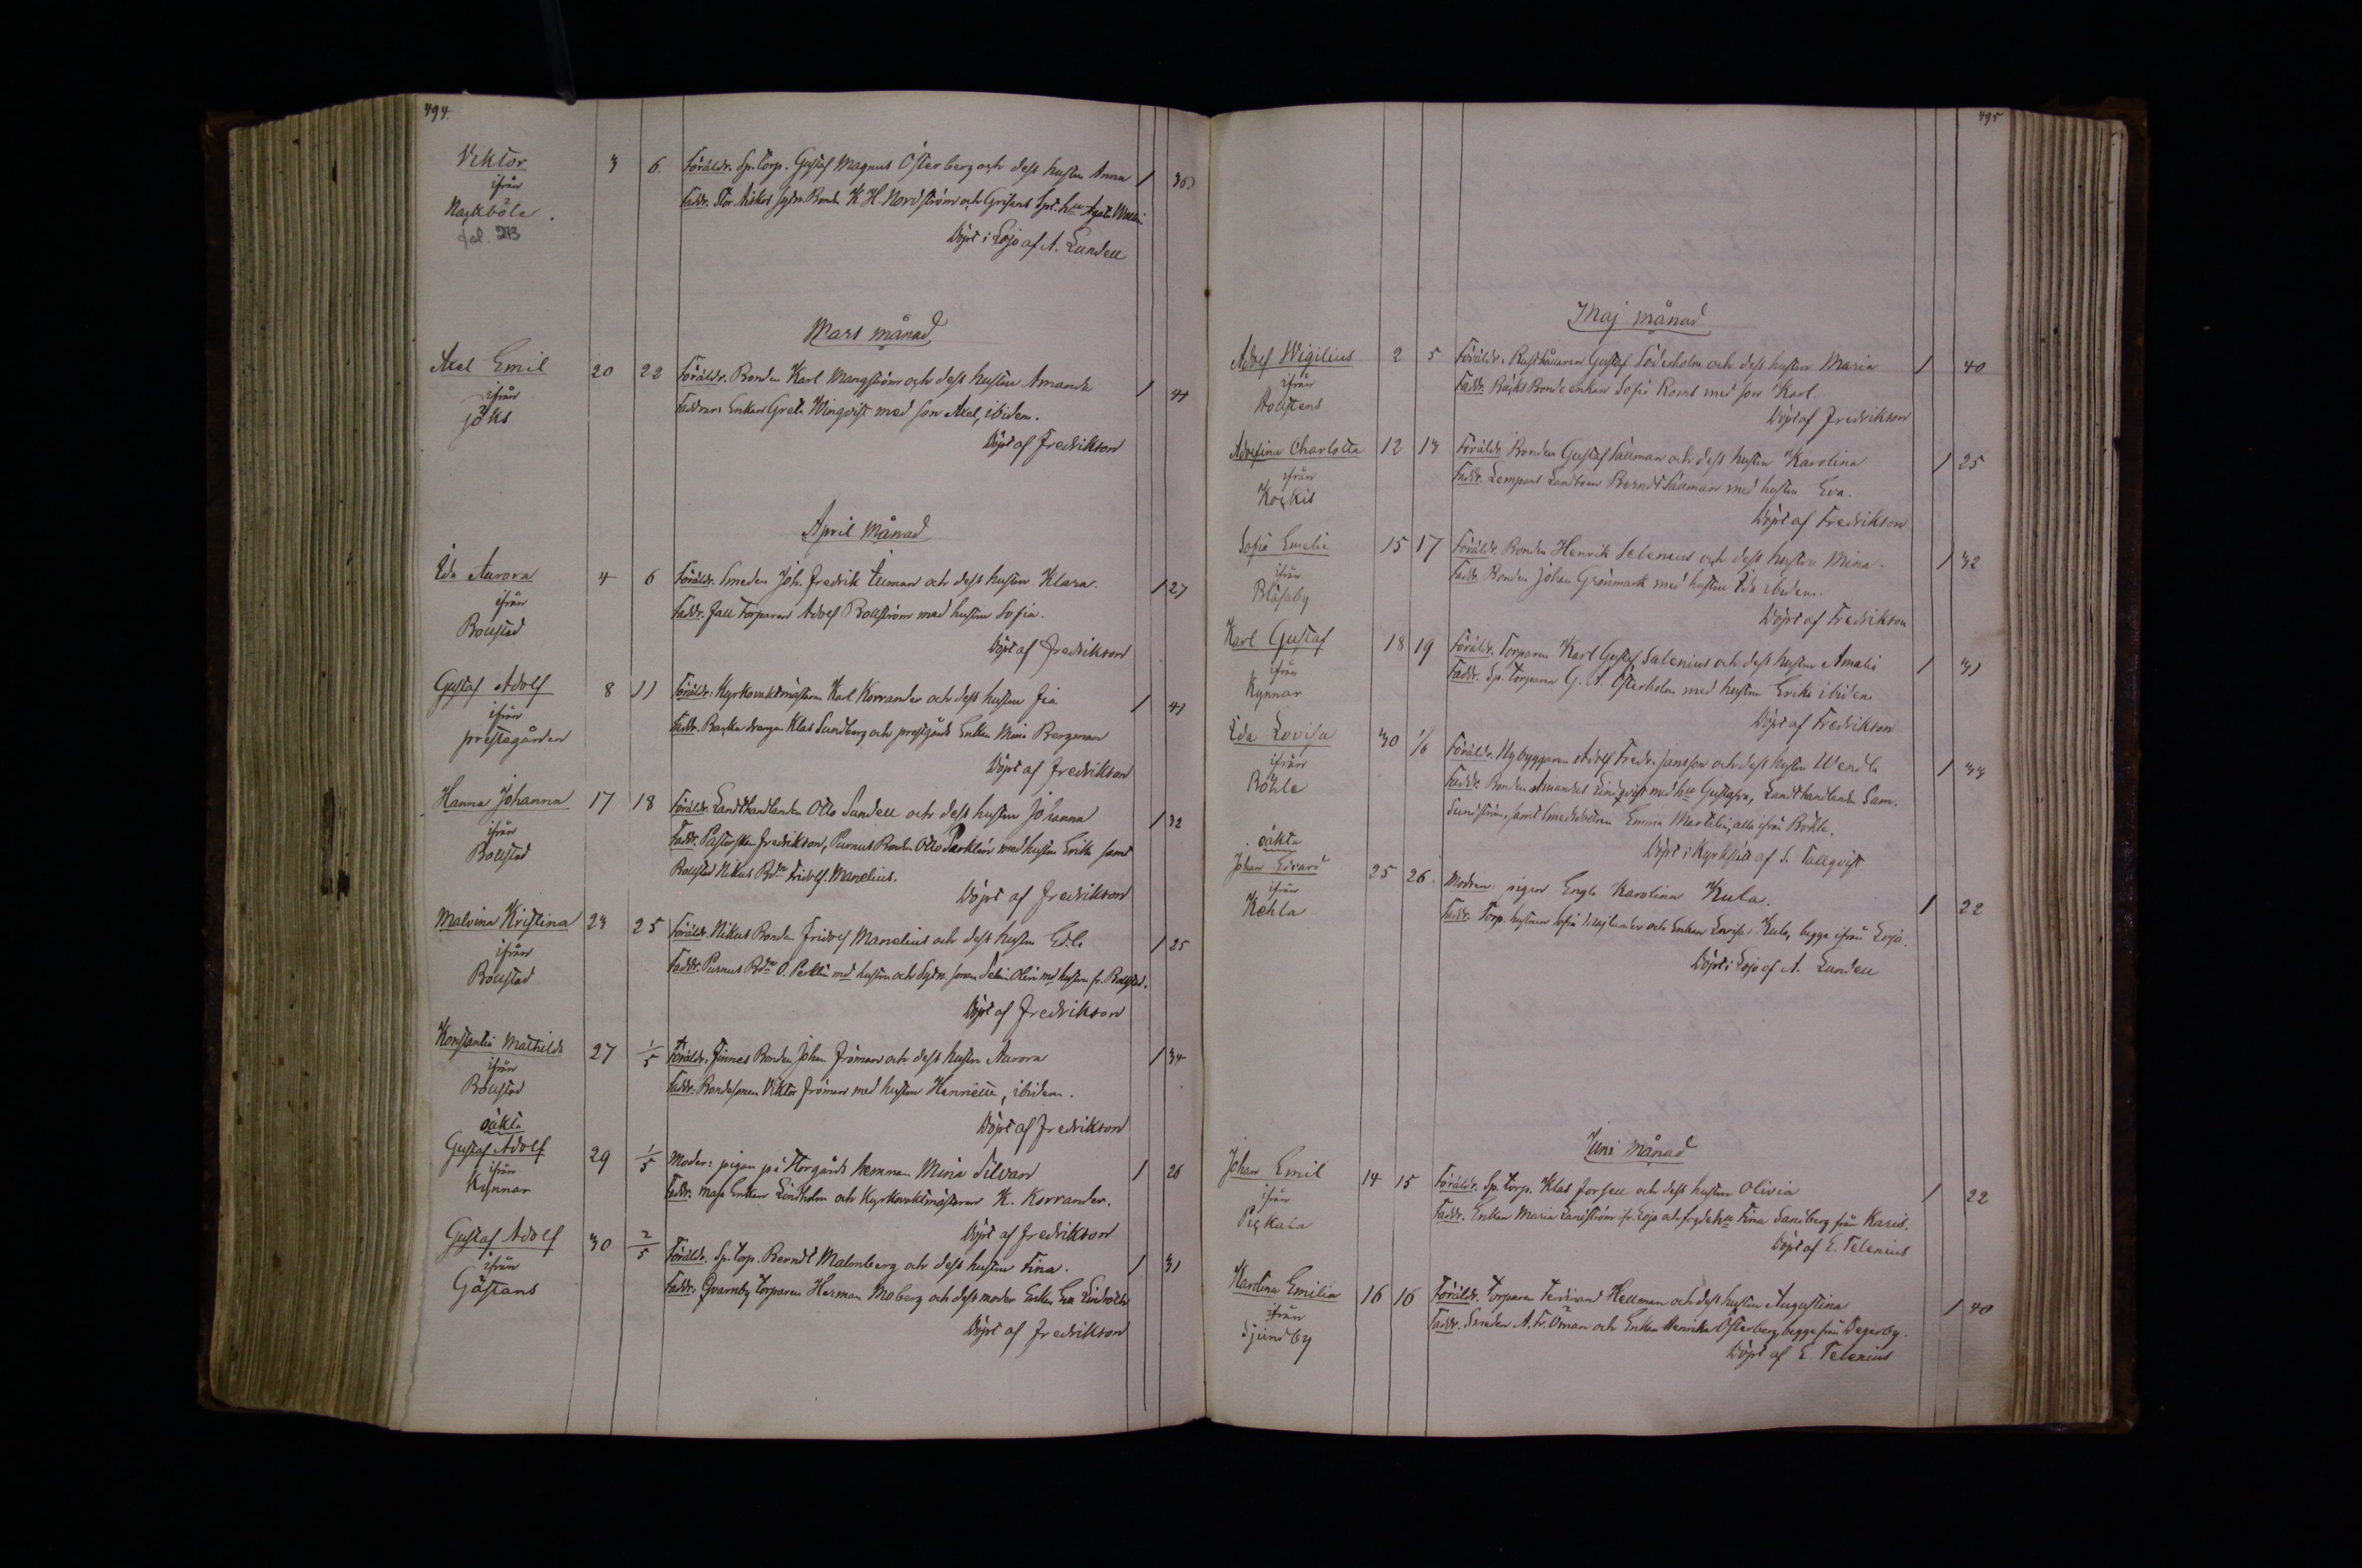 494.
Viktor 3 6. Föräldr. Sp. Torp. Gustaf Magnus Österberg och dess hustru Anna / 36.
ifrån Faddr. Stor Anskis Bonden K. H. Nordström och
Nackböle.
fol. 243
Döpt i Lojo af A. Lundell
Mars månad
Axel Emil 20 22 Föräldr. Bonden Karl Mangström och dess hustru Amanda / 44
ifrån Faddrar: Enkan Greta Wingvist med son Axel, ibidem.
Jöks
Döpt af Fredrikson
April Månad
Ida Aurora 4 6 Föräldr. Smeden Joh. Fredrik och dess hustru Klara. / 27
ifrån Faddr. Fall Torparen Adolf Bollström med hustru Sofia.
Bollstad
Döpt af Fredrikson
Gustaf Adolf 8 11 Föräldr: Kyrkovaktmästaren Karl Korrander och dess hustru Fia / 41
ifrån Faddr. Backa drengen Klas Sundberg och prestgårds Enkan Mina Bergman
prestegården
Döpt af Fredrikson
Hanna Johanna 17 18 Föräldr. Landthandlanden Otto Sundell och dess hustru Johanna / 32
ifrån Faddr. Pastorskan Fredrikson, Purnus Bonden Otto Perklén med hustru Erika samt
Bollstad Bollstad Nikus Bdn Fridolf Manelius.
Döpt af Fredrikson
Malvina Kristina 23 25 Föräldr. Nikus Bonden Fridolf Manelius och dess hustru Edla / 25
ifrån Faddr. Purnus Bdn O. Perklén med hustru och Sytn. sonen Olin med hustru fr. Bollstad.
Bollstad
Döpt af Fredrikson
Konstantia Mathilda 27 1/5 Föräldr, Finnes Bonden Johan Fröman och dess hustru Aurora / 34
ifrån Faddr. Bondesonen Viktor Fröman med hustru Henriette, ibidem.
Bollstad
Döpt af Fredrikson
oäkta
Gustaf Adolf 29 1/5 Moder: pigan på Storgårds hemman Mina Silvan / 26
ifrån Faddr. maja Enkan Lindholm och Kyrkovaktmästaren K. Korrander.
Kynnar
Döpt af Fredrikson
Gustaf Adolf 30 2/5 Föräldr. Sp. Torp. Berndt Malmberg och dess hustru Fina. / 31
ifrån Faddr: Qvarnby Torparen Herman Moberg och dess moder Enkan Eva
Gåstans
Döpt af Fredrikson
495
Maj månad
Adolf Wigilius 2 5 Föräldr. Rusthållaren Gustaf Söderholm och dess hustru Maria / 40
ifrån Faddr. Bäcks Bondeenkan Sofia Roms med son Karl.
Aollstens
Döpt af Fredrikson
Adolfina Charlotta 12 13 Föräldr. Bonden Gustaf Sallman och dess hustru Karolina / 25
ifrån Faddr. Lempans Landbon Berndt Sallman med hustru Eva.
Kockis
Döpt af Fredrikson
Sofia Emelie 15 17 Föräldr. Bonden Henrik Selenius och dess hustru Mina. / 32
ifrån Faddr. Bonden Johan Grönmark med hustru Ida ibidem.
Blåsaby
Döpt af Fredrikson
Karl Gustaf 18 19 Föräldr. Torparen Karl Gustaf Salenius och dess hustru Amalia / 31
ifrån Faddr. Sp. Torparen G. A. Österholm med hustru Erika ibidem
Kynnar
Döpt af Fredrikson
Ida Lovisa 30 1/6 Föräldr. Nybyggaren Adolf Fredr. Jansson och dess hustru Wendla / 33
ifrån Faddr. Bonden Amandus Lindqvist med hu Gustafva, Landthandlanden Sam.
Böhle Sundström, samt Emma Martelin, alla ifrån Böhle.
Döpt i Kyrkslätt af S. Tallqvist
oäkta
Johan Edvard 25 26 Modren: pigan Engla Karolina Kula. / 22
ifrån Faddr. Torp. hustrun Sofia och Enkan Lovisa Kula, begge ifrån Lojo.
Kehla
Döpt i Lojo af A. Lundell
Juni Månad
Johan Emil 14 15 Föräldr. Sp. Torp. Klas Forsell och dess hustru Olivia / 22
ifrån Faddr. Enkan Maria Landström fr. Lojo och Fina Sandberg från Karis.
Pickala
Döpt af E. Telenius
Karolina Emilia 16 16 Föräldr. Torparen Ferdinand Hellman och dess hustru Augustina / 40
ifrån Faddr. Smeden A. Fr. Öman och Enkan Henrika Österberg, begge från Degerby.
Sjundby
Döpt af E. Telenius